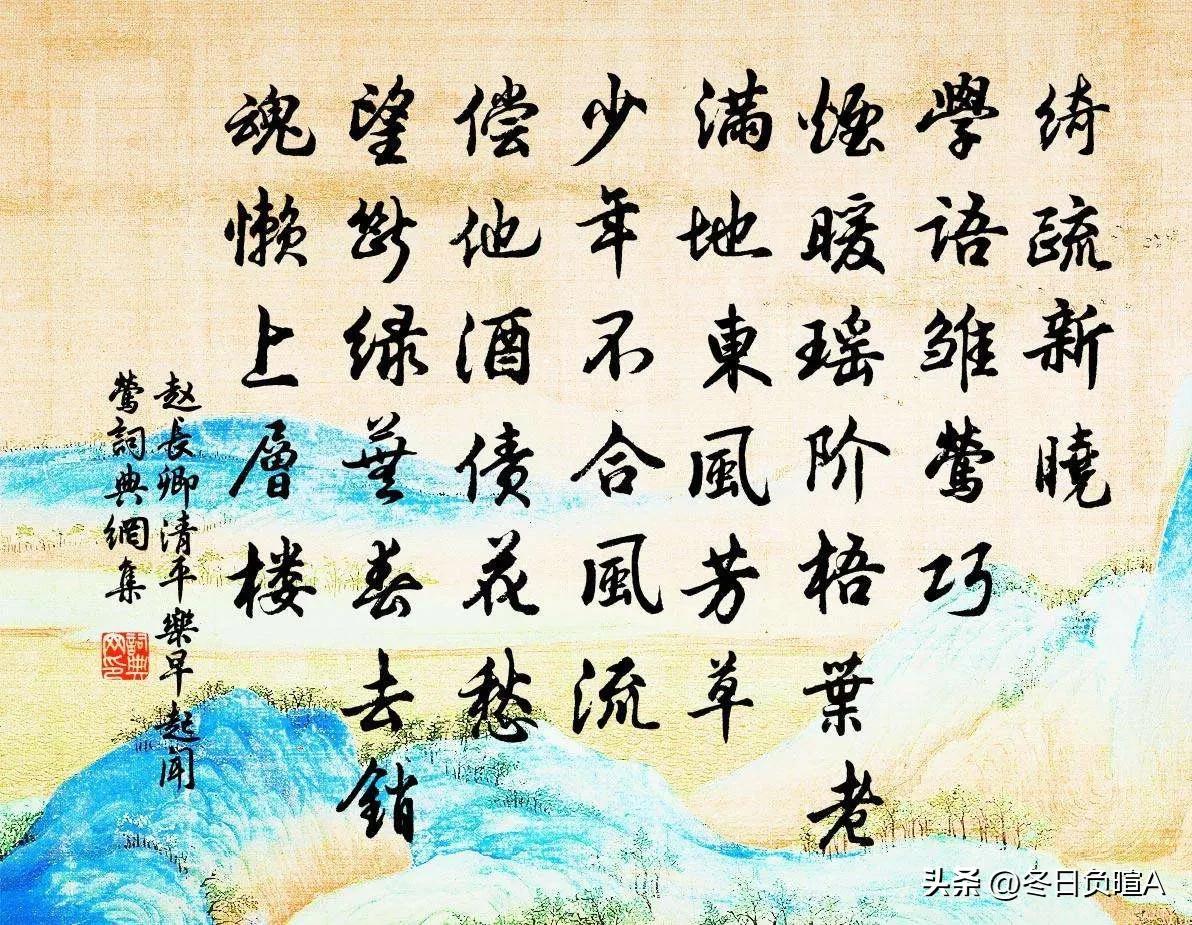 绮疏新曉
學語雏鶯巧
煙暖瑶阶梧葉老
满地東風芳草
少年不合風流
偿他酒债花愁
望断绿蕪春去銷
魂懒上層楼
赵長卿清平樂早起闻
鶯詞典網集
詞典
头条 @冬日负暄A